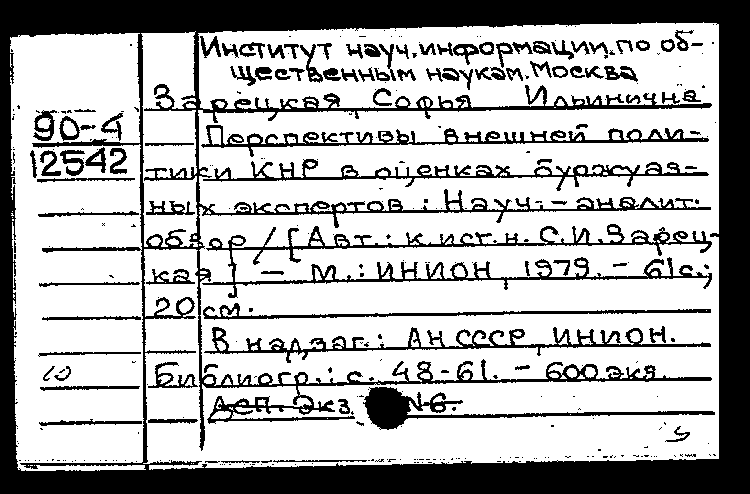 Институт науч. информации по об-
щественным наукам. Москва
Зарецкая, Софья Ильинична
90-4
Перспективы внешней поли-
12542
тики КНР в оценках буржуаз-
ных экспертов : Науч.-аналит.
обзор / [Авт.: к.ист.н. С.И.Зарец-
кая] — М.: ИНИОН, 1979. - 61с.;
20 см.
В надзаг.: АН СССР, ИНИОН.
10
Библиогр.: с. 48-61. - 600 экз.
Деп. Экз №6.